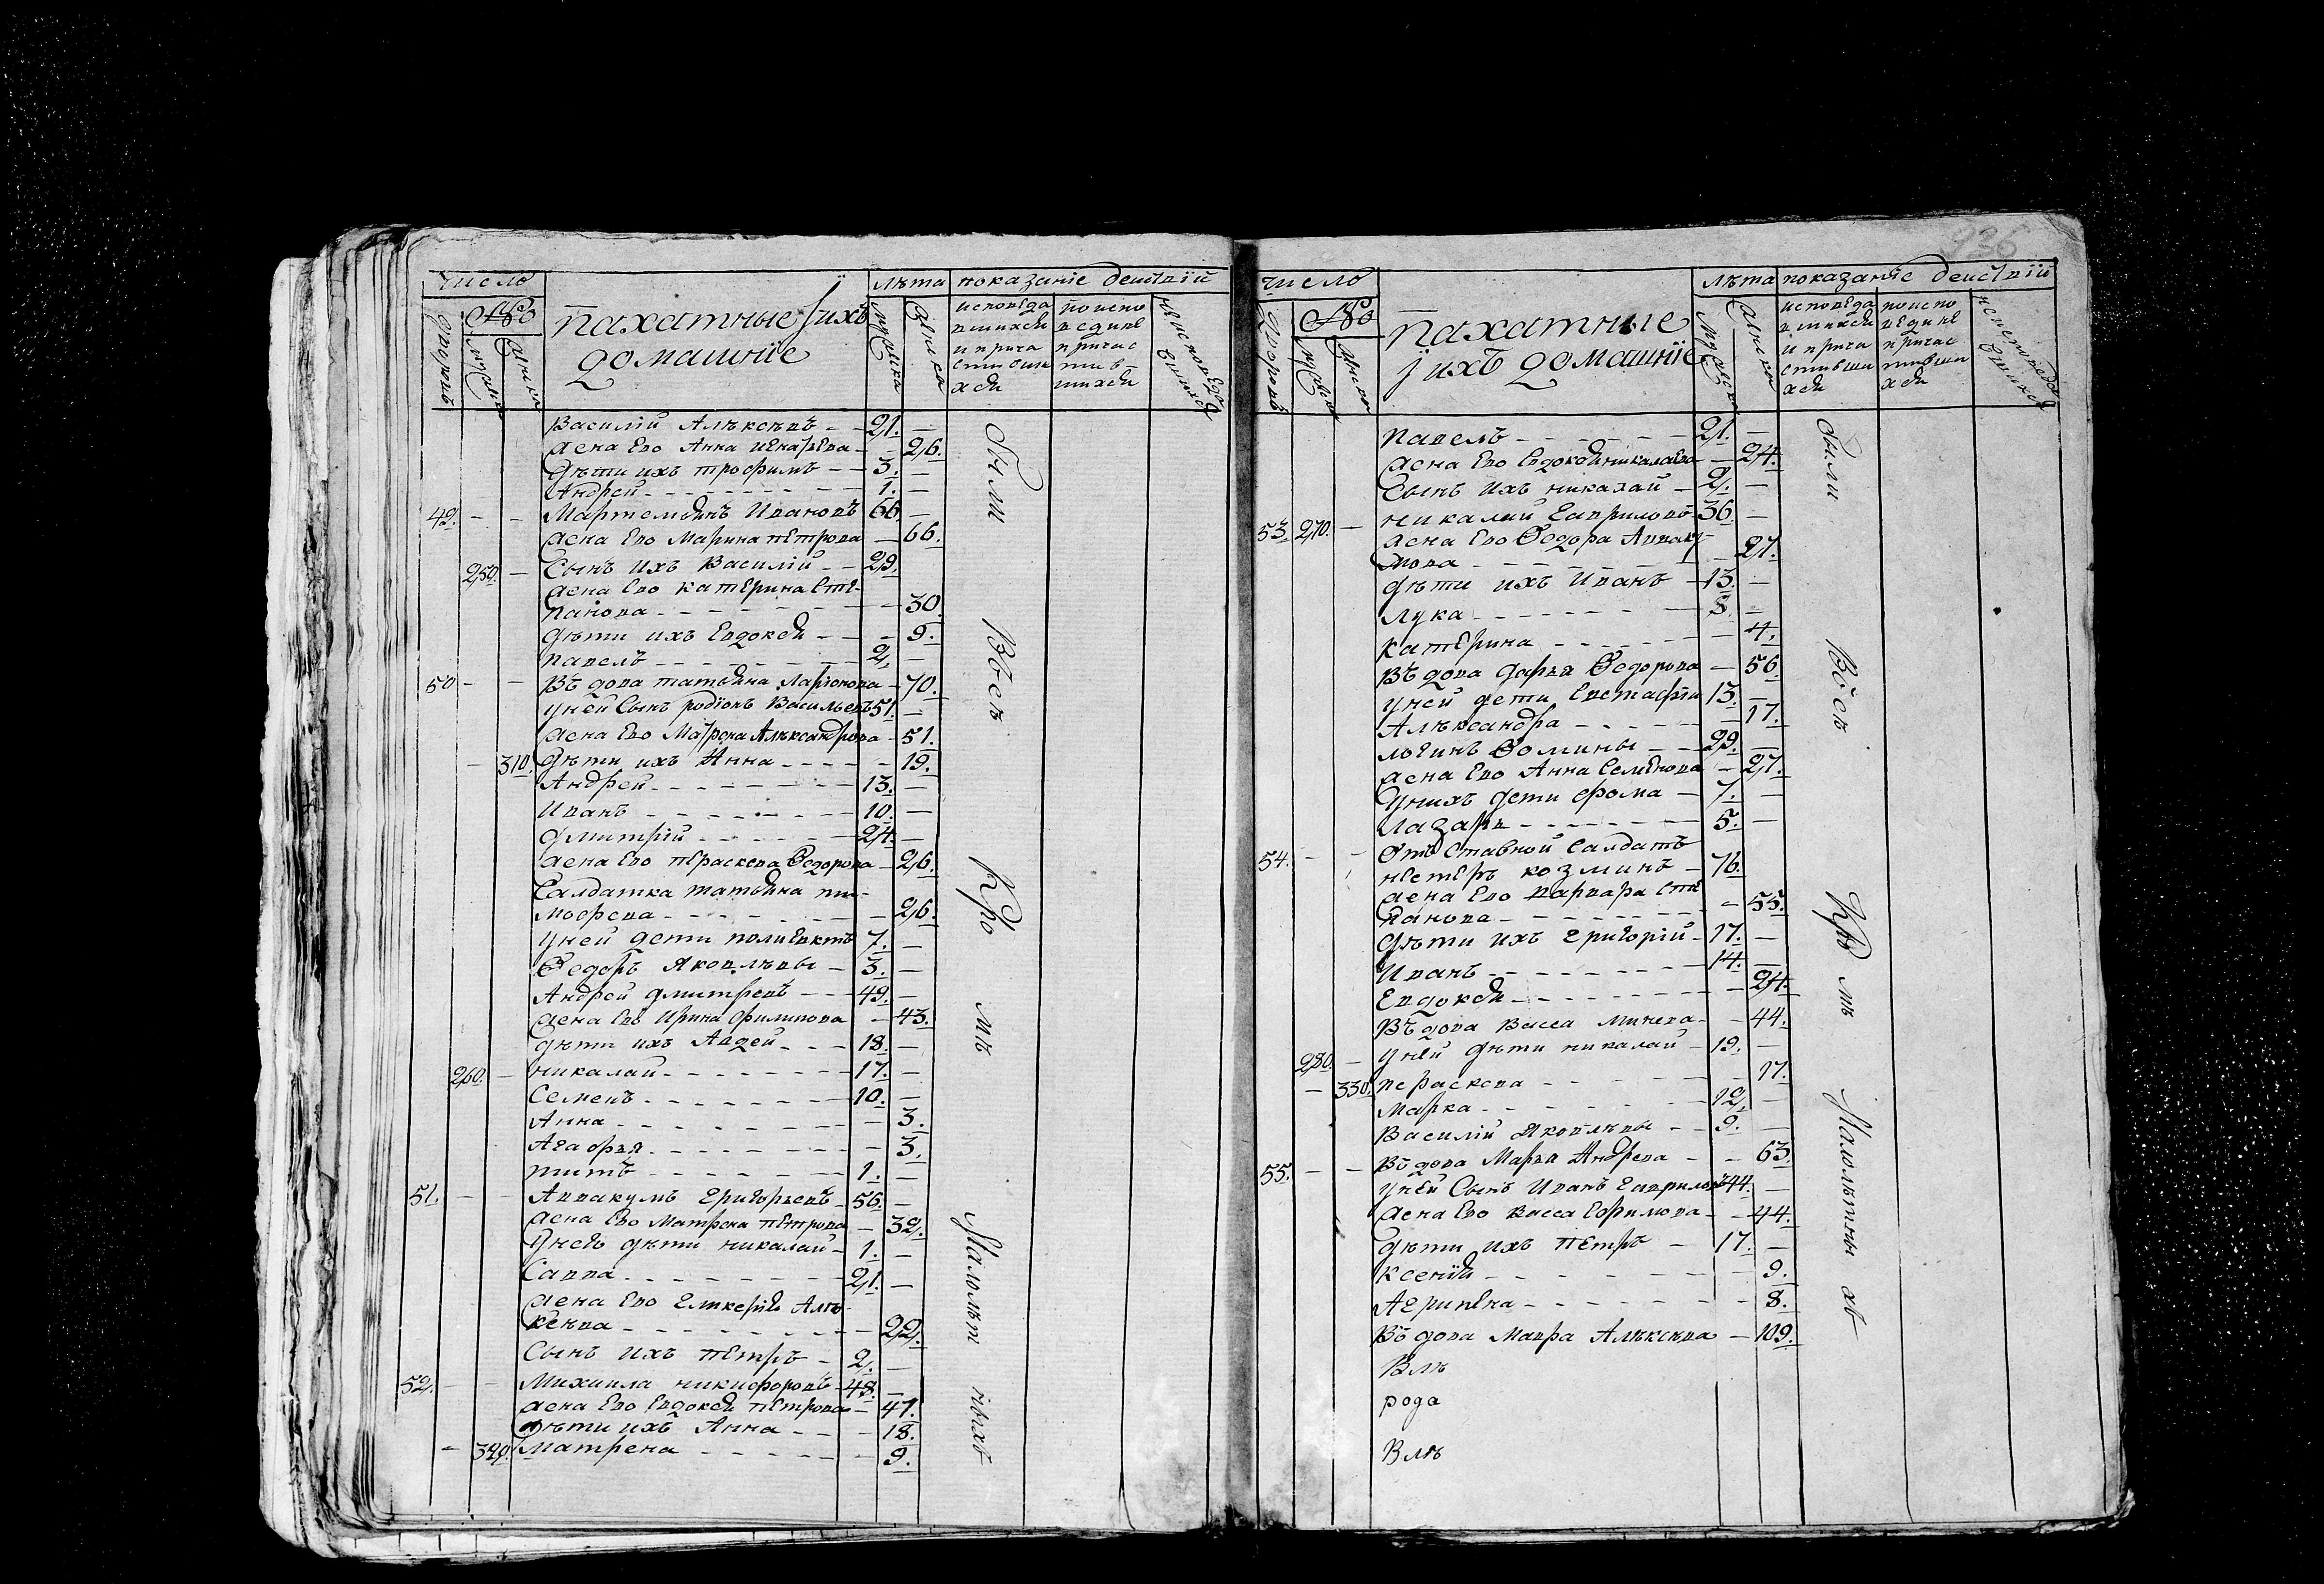 число
лѣта показаніе деиствїй
№
дворовъ
мужска
женска
пахатные ӱ ихъ
домашнїе
мужска
женска
исповеда
вшихся
и прича
стивши
хся
по испо
ведине
причас
тив
шихся
не исповеда
вшихся
Василій Алѣксѣевъ – – 21. –
жена Ево Анна Игнатьева – – 26.
дѣти ихъ трофимъ – – 3. –
Андрей – – – 1. –
49. – – Мартемьянъ Ивановъ 66. –
жена Ево Марина пЕтрова – 66.
250. – Сынъ ихъ Василій – – 29.
жена Ево катЕрина Сте-
панова – – – 30.
дѣти ихъ Евдокея – – – 9.
павелъ – – – 2, –
50 – – Въдова татьяна Ларионова – 70.
уней Сынъ родїонъ Васильевъ 51. –
жена Ево Матрена Алѣксандрова – 51.
– 310. дѣти ихъ Анна – – – 19.
Андреи – – – 13. –
Иванъ – – – 10. –
дмитрій – – – 24. –
жена Ево пЕраскева Федорова – 26.
Салдатка татьяна ти-
мофеева – – – 26.
уней дети полиЕвктъ 7. –
Федоръ Яковлѣвы – 3. –
Андрей дмитревъ – – 49. –
жена Ево Ирина филипова – 43.
дѣти ихъ Авдей – – – 18. –
260. – никалай – – – 17. –
Семенъ – – – 10. –
Анна – – – 3.
Агафья – – – 3.
титъ – – – 1. –
51. – – Аввакумъ григорьевъ – 56. –
жена Ево Матрена пЕтрова – 32.
у нево дѣти никалай – 1. –
Савва – – – 21. –
жена Ево гликерія Алѣ-
ксѣва – – – 22.
Сынъ ихъ пЕтръ – 2. –
52. – – Михаила никифоровъ – 48. –
жена Ево Евдокея пЕтрова – 47.
дѣти ихъ Анна – – – 18.
– 320. Матрена – – – 9.
были
Всѣ
Кро
мѣ
Малолѣт
ныхъ
936
число
лѣта показанїе деиствїй
№
дворовъ
мужска
женска
пахатные
ӱ ихъ домашнїе
мужска
женска
исповеда
вшихся
и прича
стивши
хся
по испо
ведине
причас
тивши
хся
не исповеда
вшихся
павелъ – – – 21. –
жена Ево Евдокея никалаева – 24.
Сынъ ихъ никалай – 2. –
53. 270. – никалай гавриловъ 36. –
жена Ево Федора Авваку-
мова – – – 27.
дѣти ихъ Иванъ – 13. –
лука – – – 8. –
катЕрина – – – 4.
Въдова дарья Федорова – 56.
уней дети Евстафїи 13. –
Алѣксандра – – – 17.
логинъ Фомины – – 29. –
жена Ево Анна Семенова – 27.
унихъ дети фома – 7. –
лазарь – – – 5. –
54. – – Отъставной Салдатъ
нестЕръ козминъ – 76.
жена Ево варвара сте
панова – – – 55.
дѣти ихъ григорій – 17. –
Иванъ – – – 14. –
Евдокея – – – 24.
Въдова васса Минева – – 44.
280. – уней дѣти никалай – 19. –
– 330. пераскева – – – 17.
Марка – – – 12, –
Василій Яковлѣвы – – 9. –
55. – – Въдова Марья Андрева – – 63.
уней Сынъ Иванъ гавриловъ 44. –
жена Ево васса Ефимова – – 44.
дѣти ихъ пЕтръ – 17. –
ксенія – – – 9.
Агрипена – – – 8.
Въдова Мавра Алѣксѣва – 109.
Влѣ
рода
Влѣ
были
Всѣ
Кро
мѣ
Малолѣтны
хъ